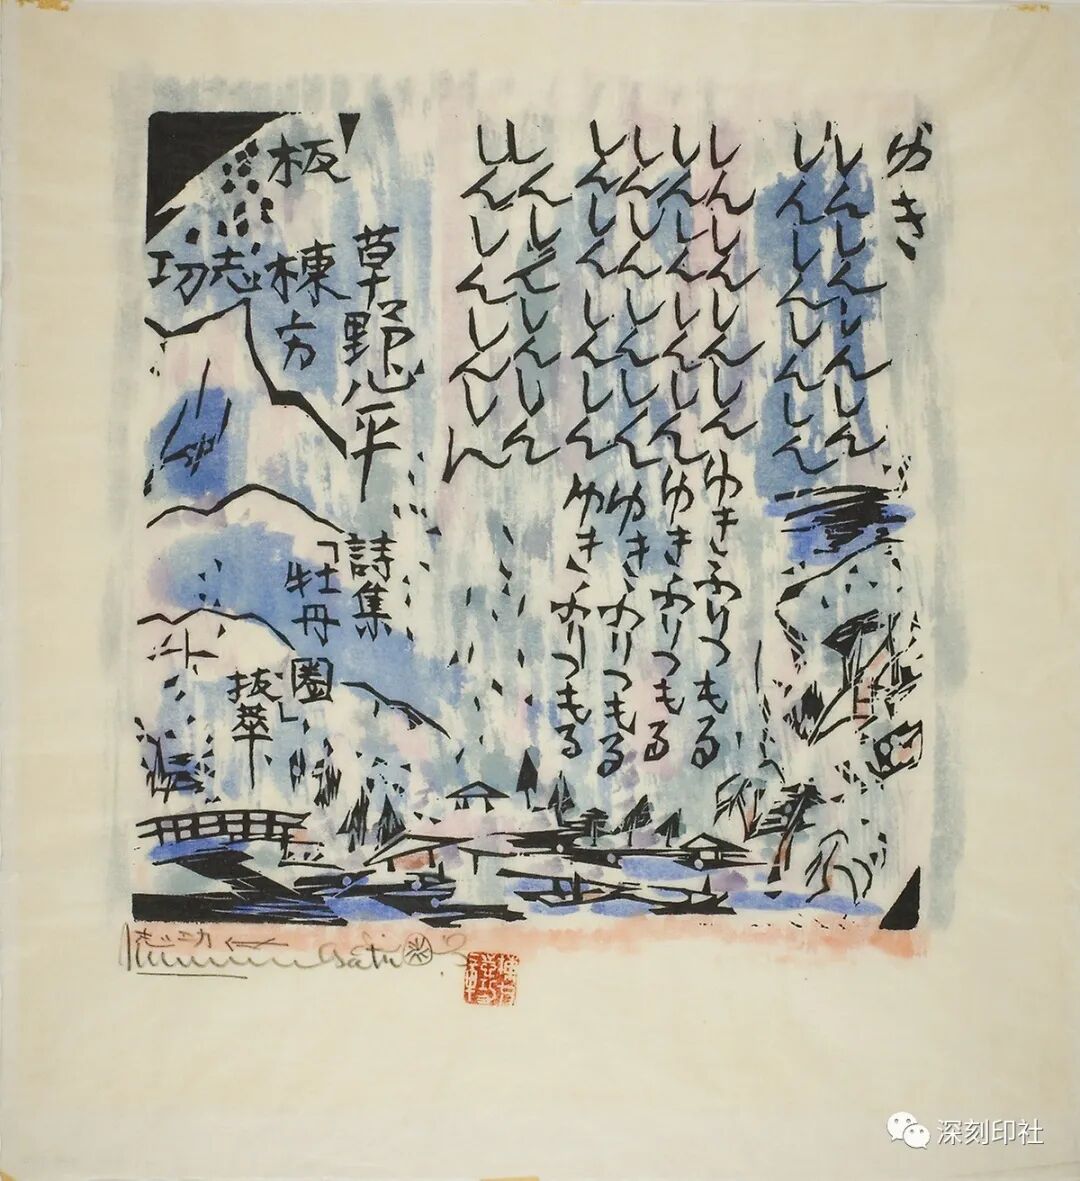 ゆき
しんしんしんしん
しんしんしんしん
しんしんしんしんゆきふりつもる
しんしんしんしんゆきふりつもる
しんしんしんしんゆきふりつもる
しんしんしんしんゆきふりつもる
しんしんしんしん
しんしんしんしん
草野心平
詩集
「牡丹圏」
抜萃
板
棟方
志功
志功
深刻印社